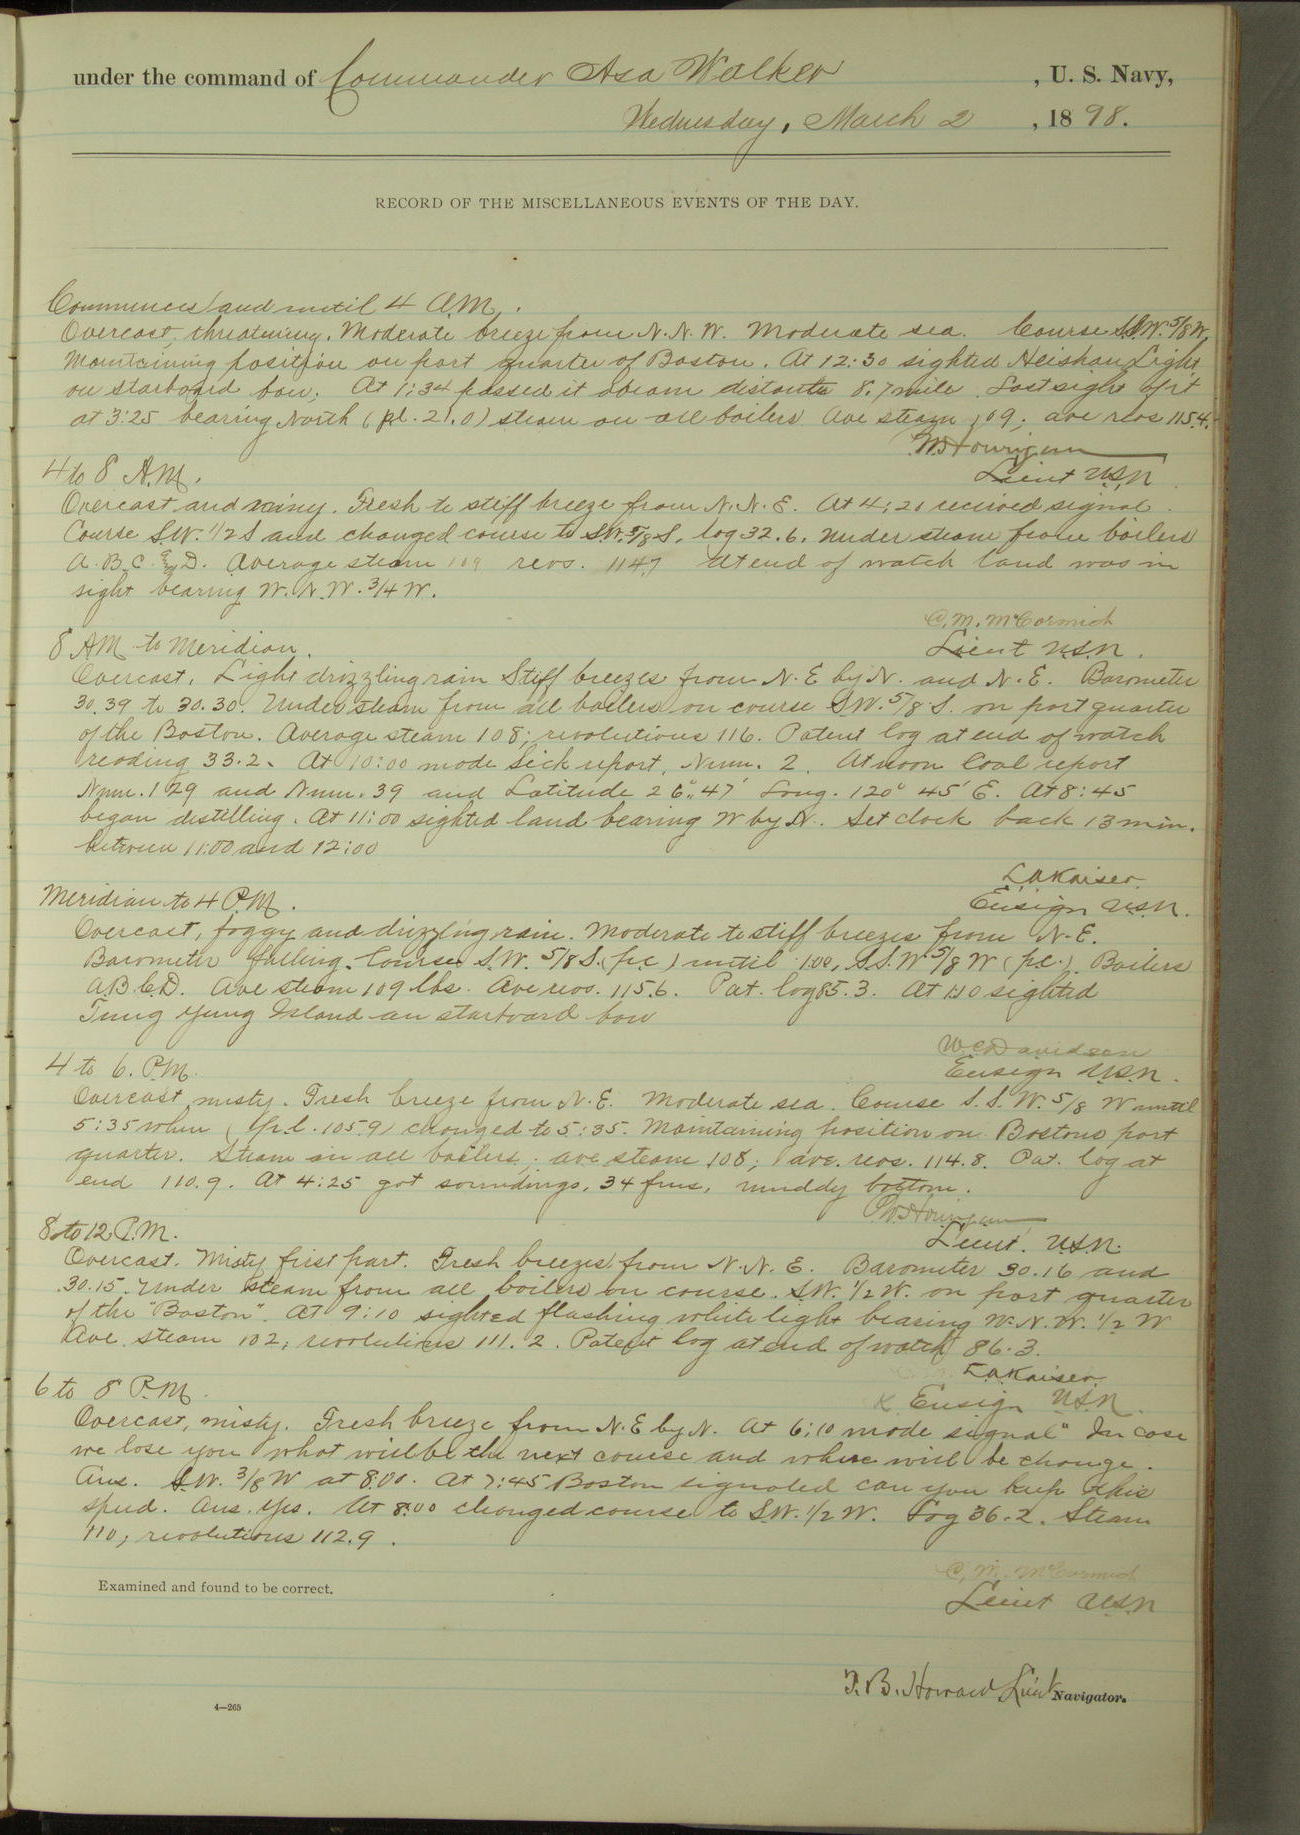 under the command of Commander Asa Walker, U. S. Navy,
Wednesday, March 2, 1898.
RECORD OF THE MISCELLANEOUS EVENTS OF THE DAY.
Commences and until 4 A.M.
Overcast, threatening. Moderate breeze from N.N.W. Moderate sea. Course S.S.W. 5/8 W,
Maintaining position on port quarter of Boston. At 12:30 sighted Heishan Light
on starboard bow. At 1:34 passed it abeam distant 8.7 mile. Lost sight of it
at 3:25 bearing North (pl. 21.0) steam on all boilers Ave steam 109; ave revs 115.4.
W.S. Hourigan
Lieut U.S.N.
4 to 8 A.M.
Overcast and rainy. Fresh to stiff breeze from N.N.E. At 4:20 received signal
Course S.W. 1/2 S and changed course to S.W. 5/8 S. log 32.6. Under steam from boilers
A.B.C. & D. Average steam 109 revs. 114.7 At end of watch land was in
sight bearing W.N.W. 3/4 W.
C. M. McCormick
Lieut U.S.N.
8 AM to Meridian.
Overcast. Light drizzling rain Stiff breezes from N.E by N. and N.E. Barometer
30.39 to 30.30. Under steam from all boilers on course S.W. 5/8 S. on port quarter
of the Boston. Average steam 108; revolutions 116. Patent log at end of watch
reading 33.2. At 10:00 made sick report, Num. 2. At noon Coal report
Num. 129 and Num. 39 and Latitude 26° 47' Long. 120° 45' E. At 8:45
began distilling. At 11:00 sighted land bearing W by N. Set clock back 13 min.
between 11:00 and 12:00
L A Kaiser
Ensign U.S.N.
Meridian to 4 P.M.
Overcast, foggy and drizzling rain. Moderate to stiff breezes from N.E.
Barometer falling. Course S.W. 5/8 S. (p.c) until 1.00, S.S.W 5/8 W (p.c.). Boilers
A B C D. Ave steam 109 lbs. Ave revs. 115.6. Pat. log 85.3. At sighted
Tung Yung Island on starboard bow
W C Davidson
Ensign U.S.N.
4 to 6. P.M.
Overcast, misty. Fresh breeze from N.E. Moderate sea. Course S.S.W. 5/8 W until
5:35 when (p.l. 105.9) changed to 5:35. Maintaining position on Bostons port
quarter. Steam on all boilers; ave steam 108; ave. revs. 114.8. Pat. log at
end 110.9. At 4:25 got soundings, 34 fms, muddy bottom.
W.S. Hourigan
Lieut. U.S.N.
8 to 12 P.M.
Overcast. Misty first part. Fresh breezes from N.N.E. Barometer 30.16 and
30.15. Under steam from all boilers on course. S.W. 1/2 W. on port quarter
of the "Boston". At 9:10 sighted flashing white light bearing W.N.W. 1/2 W
Ave. steam 102, revolutions 111.2. Patent log at end of watch 86.3.
L A Kaiser
x Ensign U.S.N.
6 to 8 P.M.
Overcast, misty. Fresh breeze from N.E by N. At 6:10 made signal "In case
we lose you what will be the next course and where will be change.
Ans. S.W. 3/8 W at 8.00. At 7:45 Boston signaled can you keep this
speed. Ans. Yes. At 8:00 changed course to S.W. 1/2 W. Log 36.2. Steam
110, revolutions 112.9.
C. M. McCormick
Lieut U.S.N
Examined and found to be correct.
T. B. Howard Lieut Navigator.
4—265